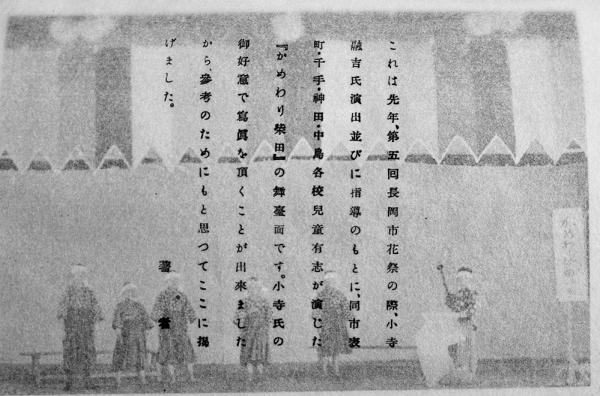 これは先年、第五回長岡市花祭の際、小寺
融吉氏演出並びに指導のもとに、同市表
町・千手・神田・中島各校兒童有志が演じた
『かめわり柴田』の舞臺面です。小寺氏の
御好意で寫眞を頂くことが出來ました
から、參考のためにもと思つてここに掲
げました。
著者
かめわり